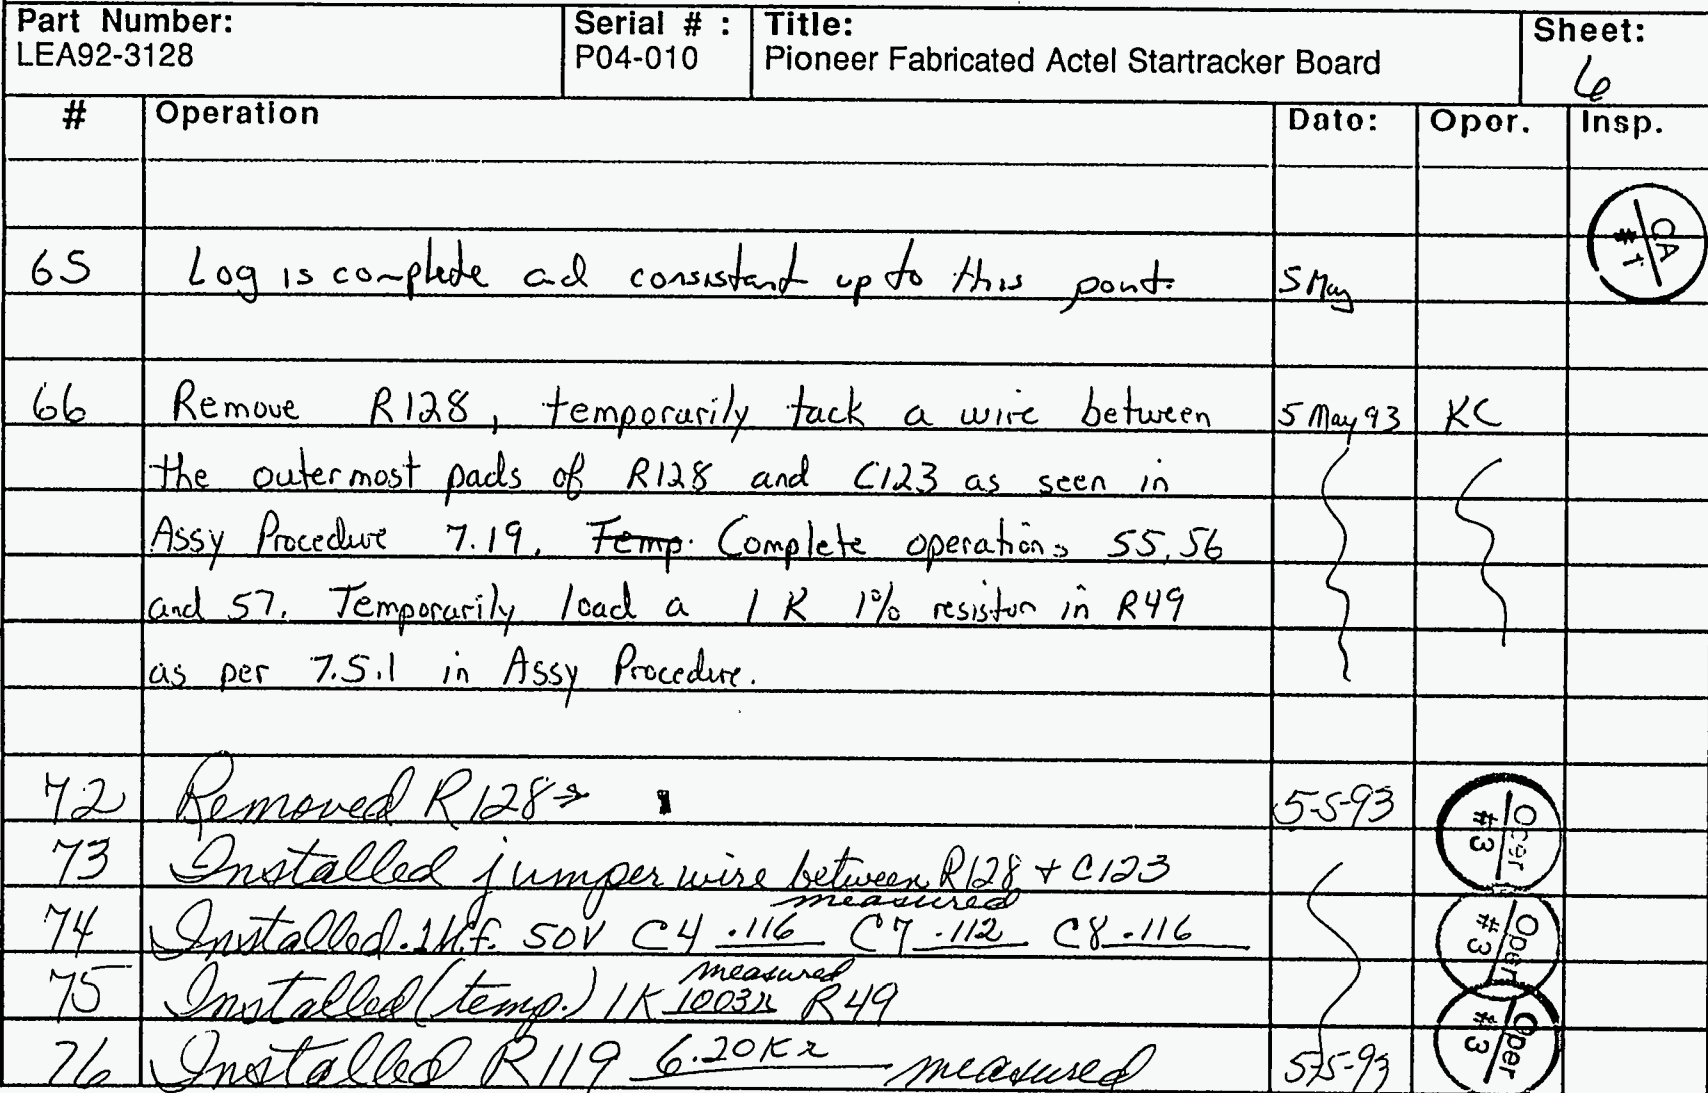 Part Number: Serial # : Title: Sheet:
LEA92-3128 P04-010 Pioneer Fabricated Actel Startracker Board 6
# Operation Date: Oper. Insp.
QA #1
65 Log is complete and consistant up to this point. 5 May
66 Remove R128, temporarily tack a wire between 5 May 93 KC
the outermost pads of R128 and C123 as seen in
Assy Procedure 7.19. Temp. Complete operations 55, 56
and 57. Temporarily load a 1 K 1% resistor in R49
as per 7.5.1 in Assy Procedure.
72 Removed R128 5-5-93 Oper #3
73 Installed jumper wire between R128 + C123
measured
74 Installed .1 50V C4 .116 C7 .112 C8 .116 Oper #3
measured
75 Installed (temp.) 1K 1003Ω R49
76 Installed R119 6.20KΩ measured 5-5-93 Oper #3